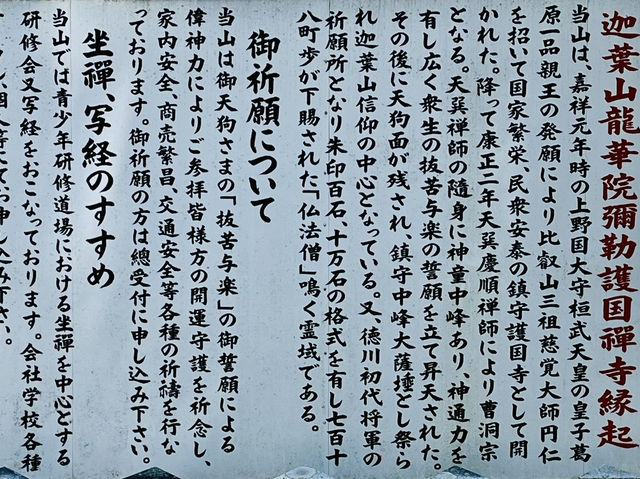 迦葉山龍華院彌勒護国禅寺縁起
当山は、嘉祥元年時の上野国大守桓武天皇の皇子葛
原一品親王の発願により比叡山三祖慈覚大師円仁
を招いて国家繁栄、民衆安泰の鎮守護国寺として開
かれた。降って康正二年天巽慶順禅師により曹洞宗
となる。天巽禅師の隨身に神童中峰あり、神通力を
有し広く衆生の抜苦与楽の誓願を立て昇天された。
その後に天狗面が残され、鎮守中峰大薩埵とし祭ら
れ迦葉山信仰の中心となっている。又徳川初代将軍の
祈願所となり朱印百石、十万石の格式を有し七百十
八町歩が下賜された「仏法僧」鳴く霊域である。
御祈願について
当山は御天狗さまの「抜苦与楽」の御誓願による
偉神力によりご参拝皆様方の開運守護を祈念し、
家内安全、商売繁昌、交通安全等各種の祈禱を行な
っております。御祈願の方は總受付に申し込み下さい。
坐禪、写経のすすめ
当山では青少年研修道場における坐禪を中心とする
研修会又写経をおこなっております。会社学校各種
申し込み下さい。